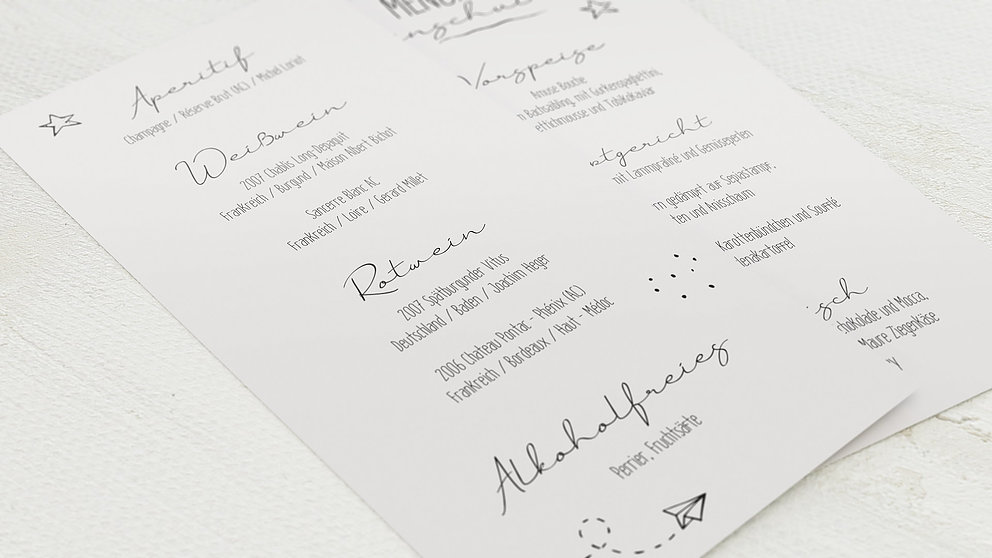 Aperitif
Champagne / Réserve Brut (AC) / Michel Loriot
Weißwein
2007 Chablis Long-Depaquit
Frankreich / Burgund / Maison Albert Bichot
Sancerre Blanc AC
Frankreich / Loire / Gerard Millet
Rotwein
2007 Spätburgunder Vitus
Deutschland / Baden / Joachim Heger
2006 Chateau Pontac - Phénix (AC)
Frankreich / Bordeaux / Haut - Médoc
Alkoholfreies
Perrier, Fruchtsäfte
Vorspeise
Amuse Bouche
Bachsaibling, mit Gurkenspaghettini,
ettichmousse und Tobikokaviar
tgericht
mit Lammpraliné und Gemüseperlen
rn gedämpft auf Sepiastampf,
ten und Anisschaum
Karottenbündchen und Soufflé
lenakartoffel
isch
hokolade und Mocca,
Maure Ziegenkäse